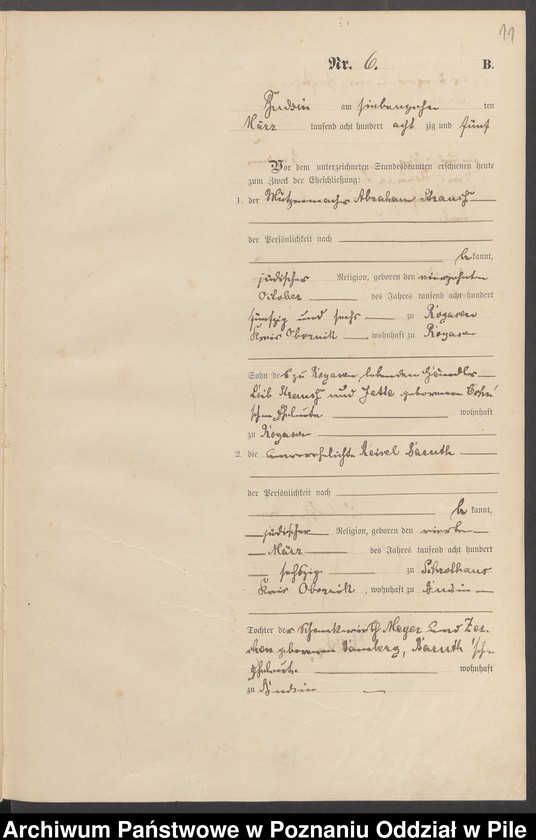 11
Nr. 6. B.
Budsin am siebenzehn ten
März tausend acht hundert acht zig und fünf
Vor dem unterzeichneten Standesbeamten erschienen heute
zum Zweck der Eheschließung:
1. der Mützenmacher Abraham
der Persönlichkeit nach
be kannt,
jüdischer Religion, geboren den vierzehnten
Oktober des Jahres tausend acht hundert
fünfzig und sechs zu Rogasen
Kreis Obornik, wohnhaft zu Rogasen
Sohn des zu Rogasen lebenden Händlers
Leib und Jette geborenen
Eheleute wohnhaft
zu Rogasen
2. die unverehelichte Reisel Baruth
der Persönlichkeit nach
be kannt,
jüdischer Religion, geboren den vierten
März des Jahres tausend acht hundert
sechszig zu
Kreis Obornik, wohnhaft zu Budsin
Tochter der Schankwirth Meyer und
geborenen Baruth
Eheleute wohnhaft
zu Budsin
Archiwum Państwowe w Poznaniu Oddział w Pile